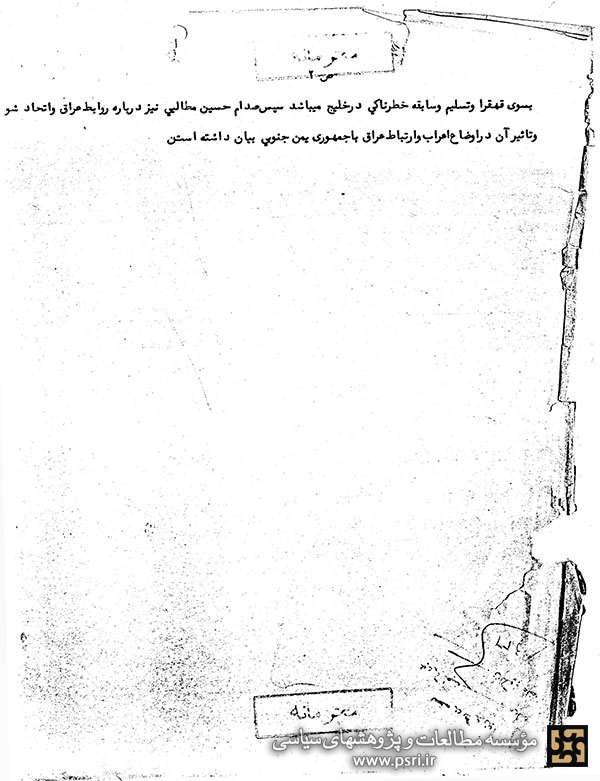 محرمانه
ص-٢
بسوی قهقرا وتسلیم وسابقه خطرناکي درخلیج میباشد سپس صدام حسین مطالبي نیز درباره روابط عراق واتحاد شو
وتاثیر آن دراوضاع اعراب وارتباط عراق باجمهوری یمن جنوبي بیان داشته است.ن
محرمانه
مؤسسه مطالعات و پژوهشهای سیاسی
www.psri.ir